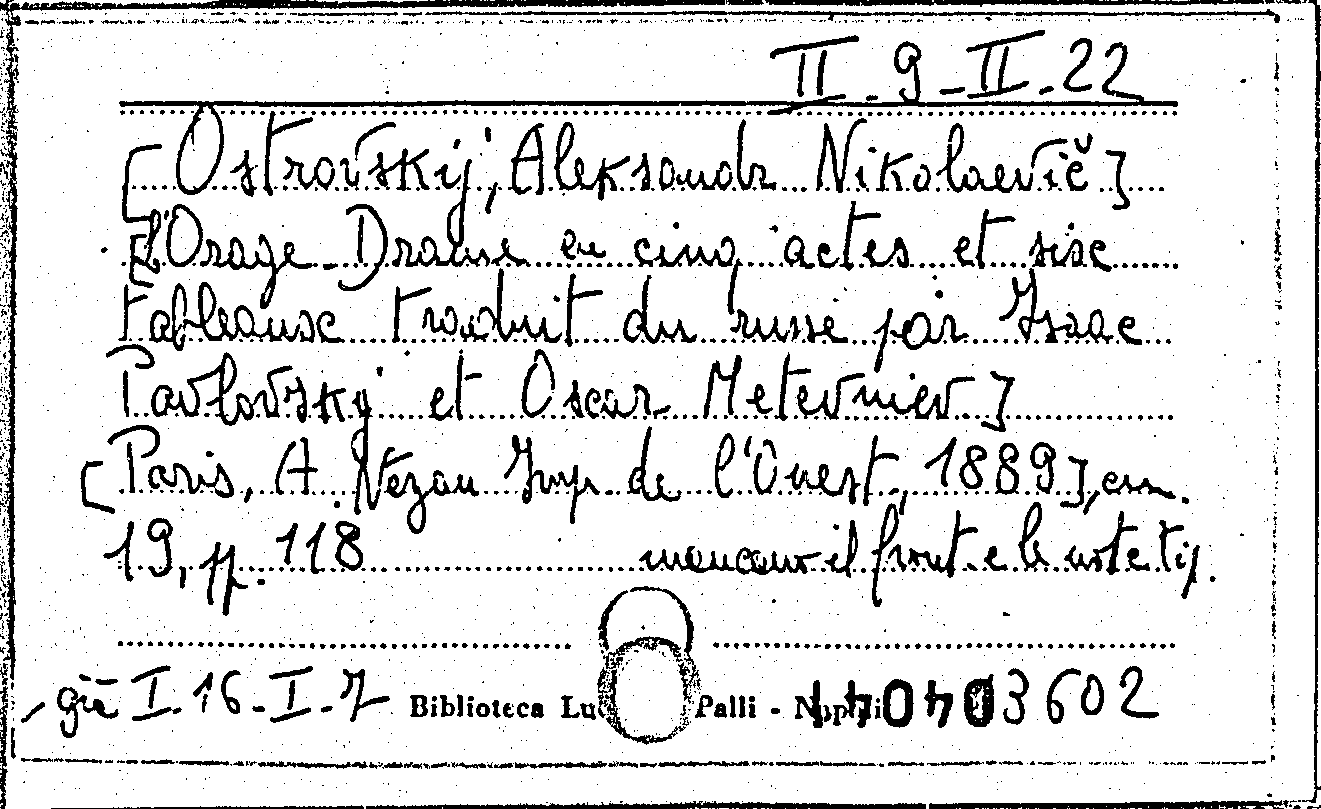 II - 9 - II. 22
[Ostrovskij, Aleksandr Nikolaevič]
[L'Orage - Drame en cinq actes et sisc
tableausc traduit du russe par Isaac
Pavlovsky et Oscar Metevnier]
[Paris, A. Nezan Imp. de l'Ouest, 1889], cm.
19, pp. 118 mancano il front. e le note tip.
già I. 16 - I - 7 Biblioteca Palli - 3602